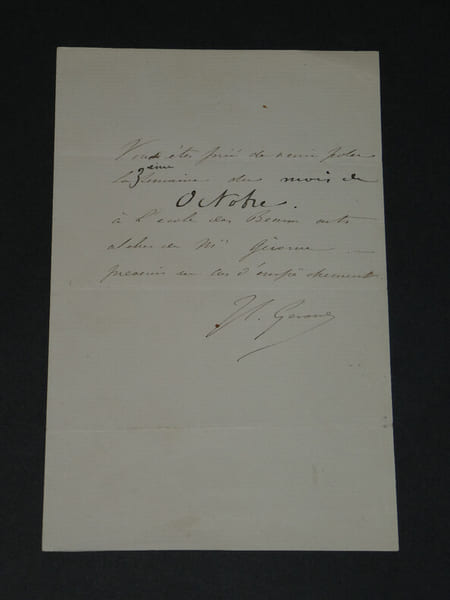 Vous êtes prié de venir poser
la 3ème semaine du mois de
Octobre.
à l'école des Beaux arts
atelier de Mr Gérome
prévenir en cas d'empêchement
JL. Gerome